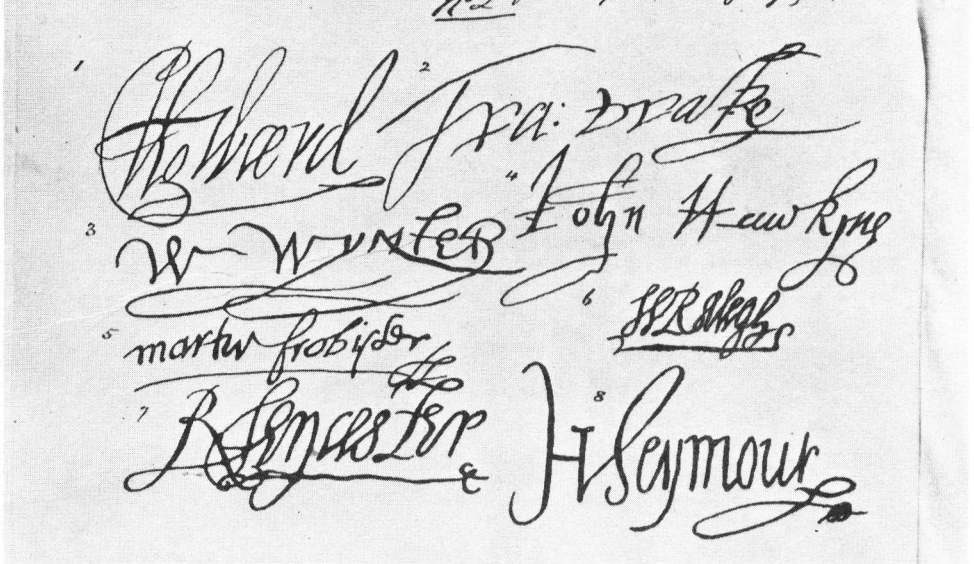 1 C Howard 2 Fra: Drake
3 W Wynter 4 John Hawkyns
5 martin frobiser 6 WRalegh
7 R Lencaster 8 H Seymour